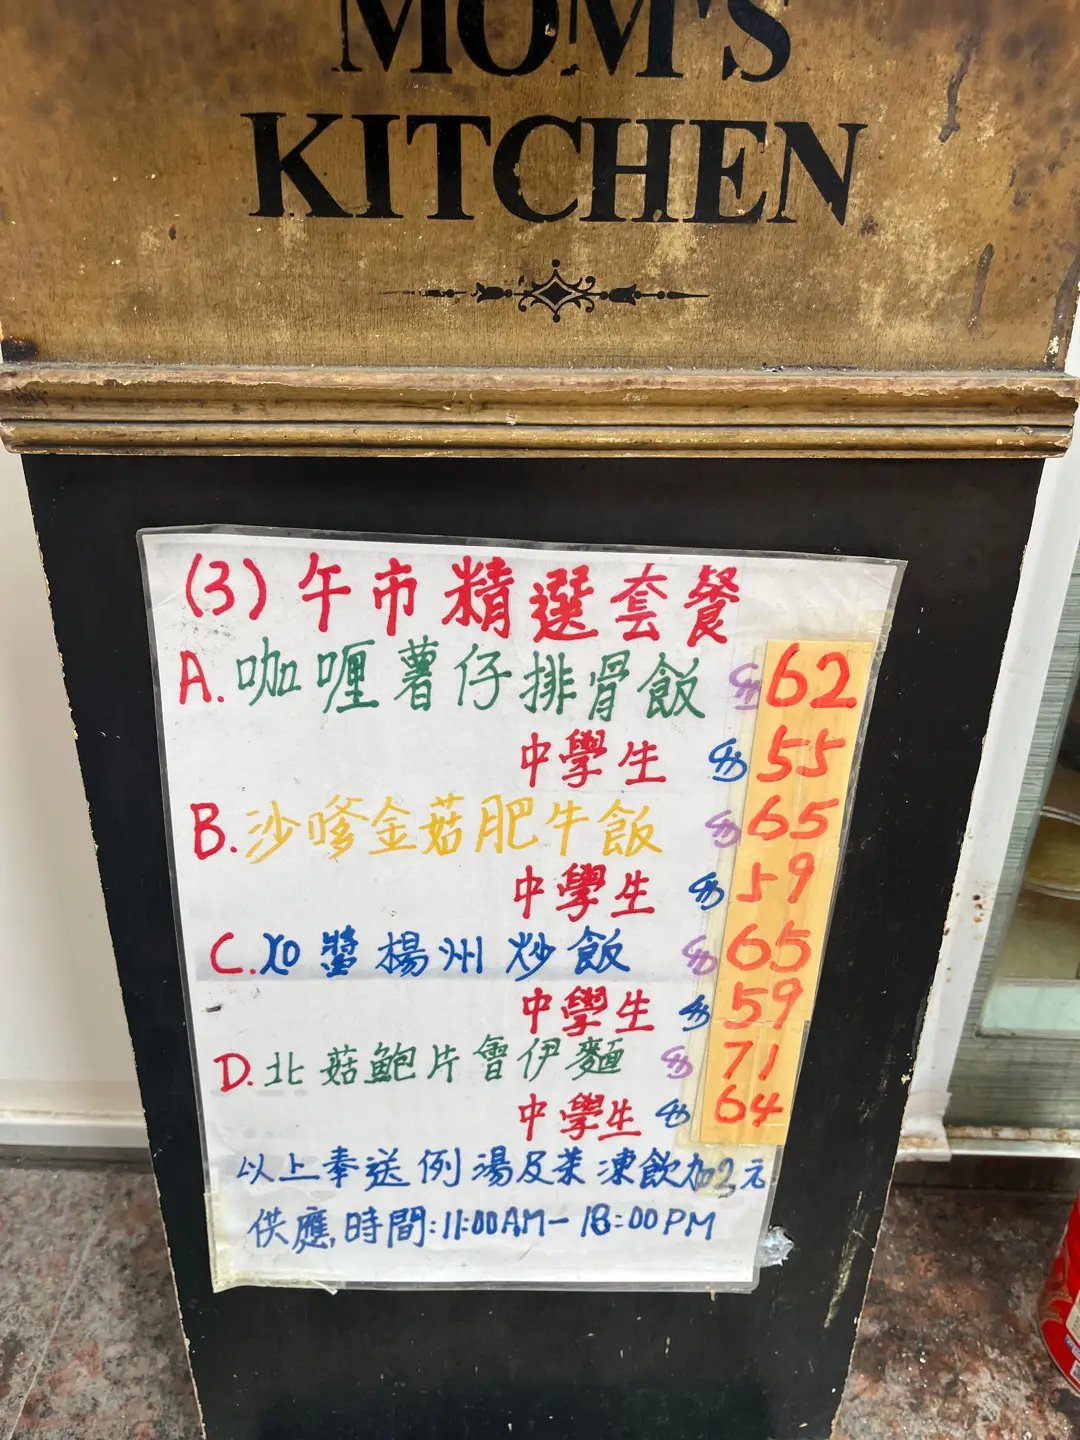 MOM'S
KITCHEN
(3) 午市精選套餐
A. 咖喱薯仔排骨飯 $62
中學生 $55
B. 沙嗲金菇肥牛飯 $65
中學生 $59
C. XO醬楊州炒飯 $65
中學生 $59
D. 北菇鮑片會伊麵 $71
中學生 $64
以上奉送例湯及茶凍飲加2元
供應時間:11:00AM-18:00PM